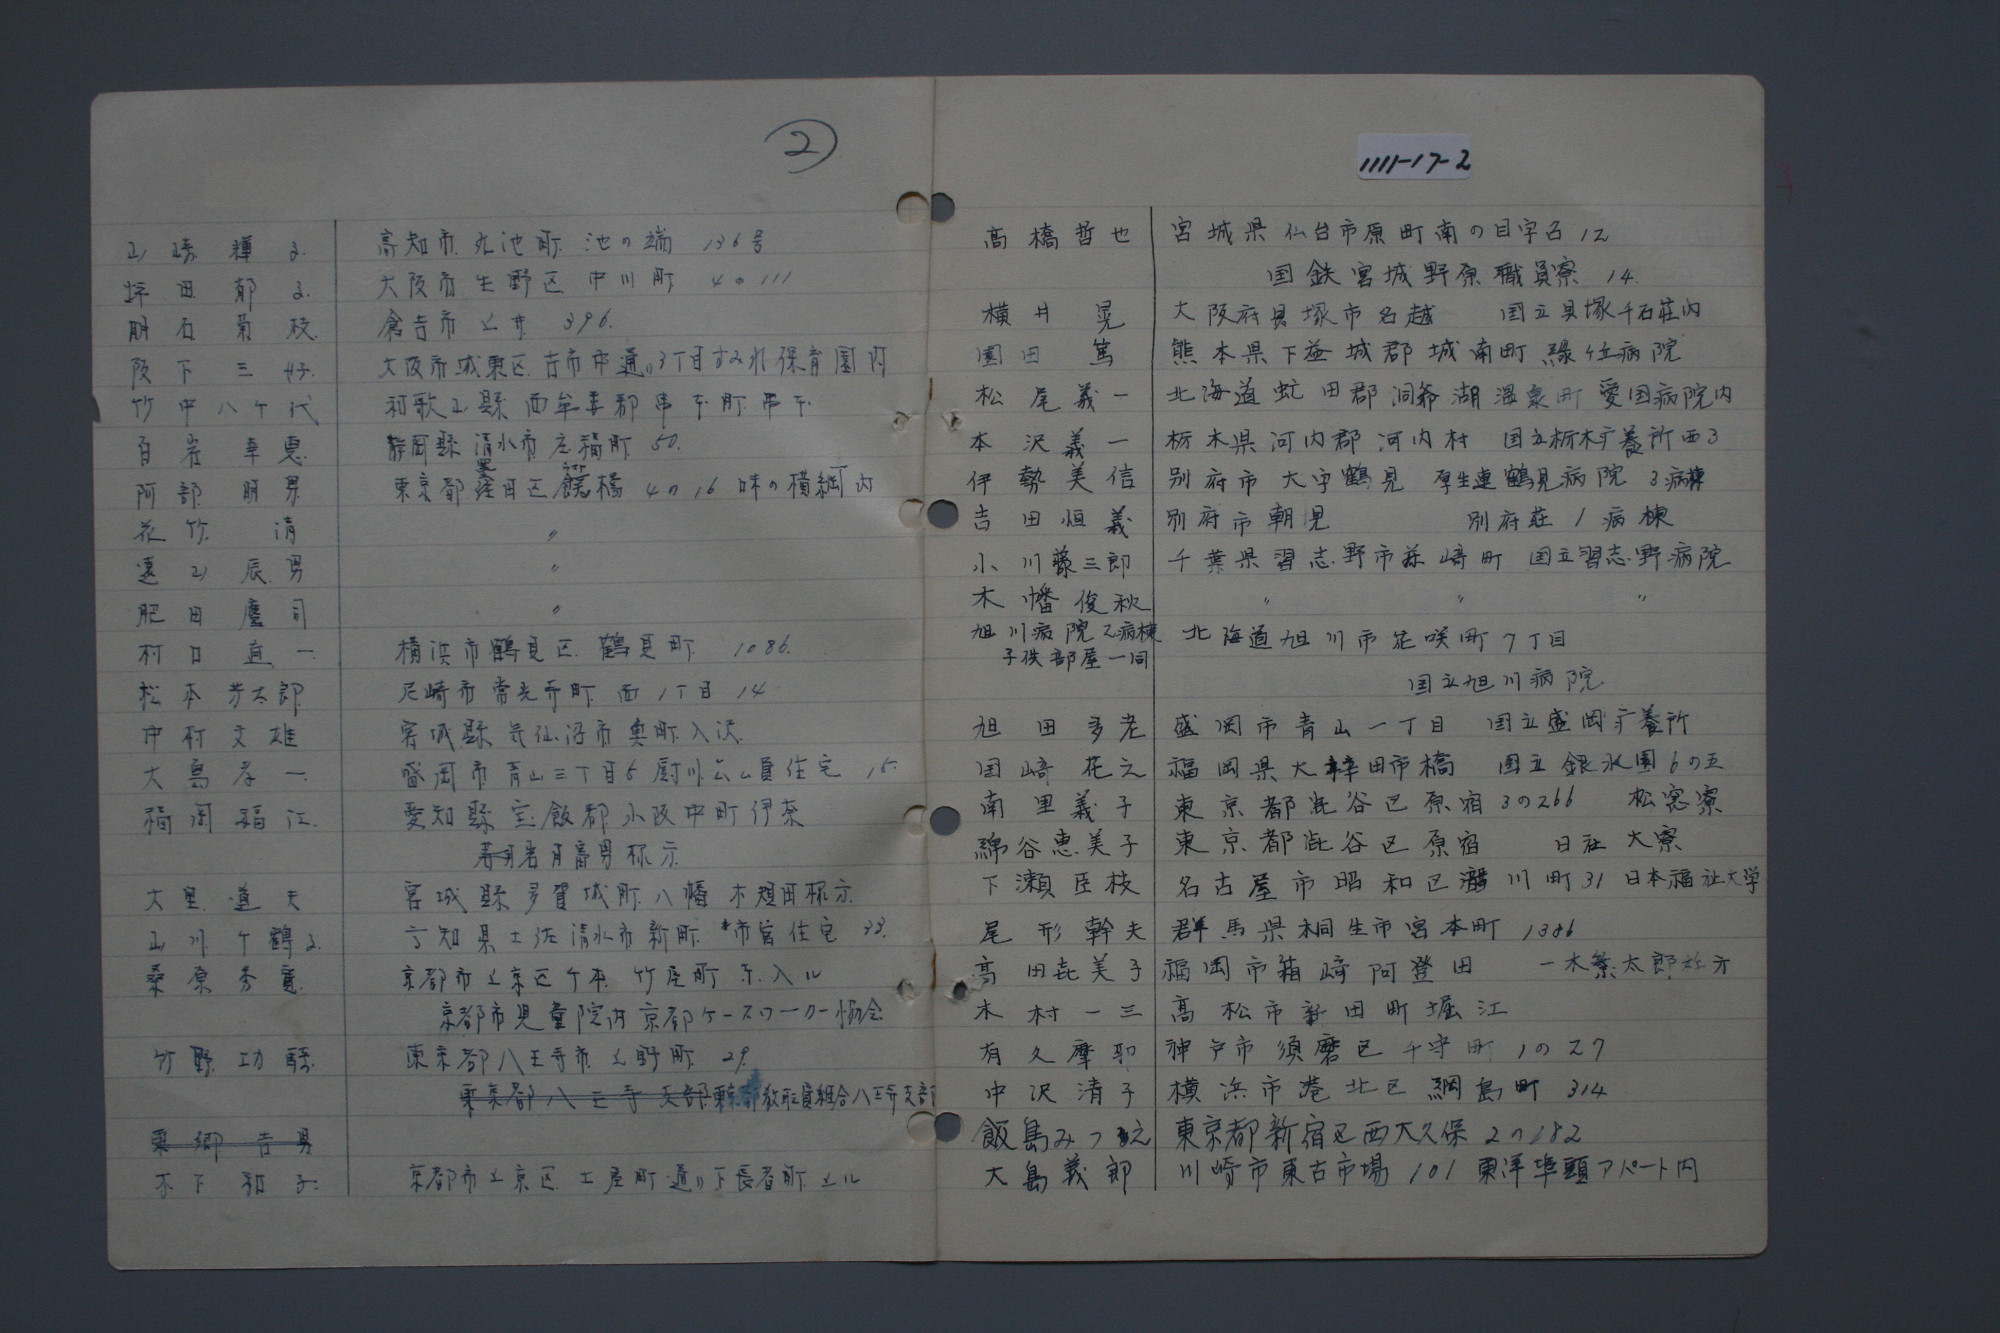 ②
山崎輝子 高知市丸池町 池の端 136号
坪田郁子 大阪市生野区中川町 4の111
明石菊枝 倉吉市上井 396.
阪下三好 大阪市城東区古市中通り3丁目すみれ保育園内
竹中八千代 和歌山縣西牟婁郡串本町串本
百岩幸恵 静岡縣清水市 町 50.
阿部明男 東京都墨田区 橋 4の16 味の横綱内
花竹清 〃
遠山辰男 〃
肥田慶司 〃
村口直一 横浜市鶴見区鶴見町 1086.
松本芳太郎 尼崎市常光寺町西1丁目14
中村文雄 宮城縣気仙沼市奥町入沢
大島孝一 盛岡市青山三丁目5厨川公ム員住宅 15.
福岡福江 愛知縣宝飯郡小坂井町伊奈
大里道夫 宮城縣多賀城町八幡
山川千鶴子 高知県土佐清水市新町 市営住宅 33.
桑原秀寛 京都市上京区千本竹屋町東入ル
京都市児童院内京都ケースワーカー協会
竹野功 東京都八王寺市上野町 29.
東京都八王寺支部 東京都教職員組合八王寺支部
東郷吉男
木下和子 京都市上京区土屋町通り下長者町上ル
1111-17-2
高橋哲也 宮城県仙台市原町南の目字呂12
国鉄宮城野原職員寮 14.
横井晃 大阪府貝塚市名越 国立貝塚千石荘内
園田篤 熊本県下益城郡城南町 緑ケ丘病院
松尾義一 北海道虻田郡洞爺湖温泉町愛国病院内
本沢義一 栃木県河内郡河内村 国立栃木疗養所西3
伊勢美信 別府市大字鶴見 厚生連鶴見病院 3病棟
吉田恒義 別府市朝見 別府荘1病棟
小川藤三郎 千葉県習志野市 崎町 国立習志野病院
木幡俊秋 〃 〃 〃
旭川病院乙病棟 北海道旭川市花咲町7丁目
子供部屋一同
国立旭川病院
旭田多老 盛岡市青山一丁目 国立盛岡疗養所
国崎花之 福岡県大牟田市橘 国立銀水園6の五
南里義子 東京都渋谷区原宿3の266 松窓寮
綿谷恵美子 東京都渋谷区原宿 日社大寮
下瀬臣枝 名古屋市昭和区滝川町31 日本福祉大学
尾形幹夫 群馬県桐生市宮本町 1386
高田㐂美子 福岡市箱崎阿登田 一木繁太郎様方
木村一三 高松市新田町堀江
有久摩耶 神戸市須磨区千守町1の27
中沢清子 横浜市港北区綱島町 314
飯島みつえ 東京都新宿区西大久保2の182
大島義郎 川崎市東古市場101東洋埠頭アパート内